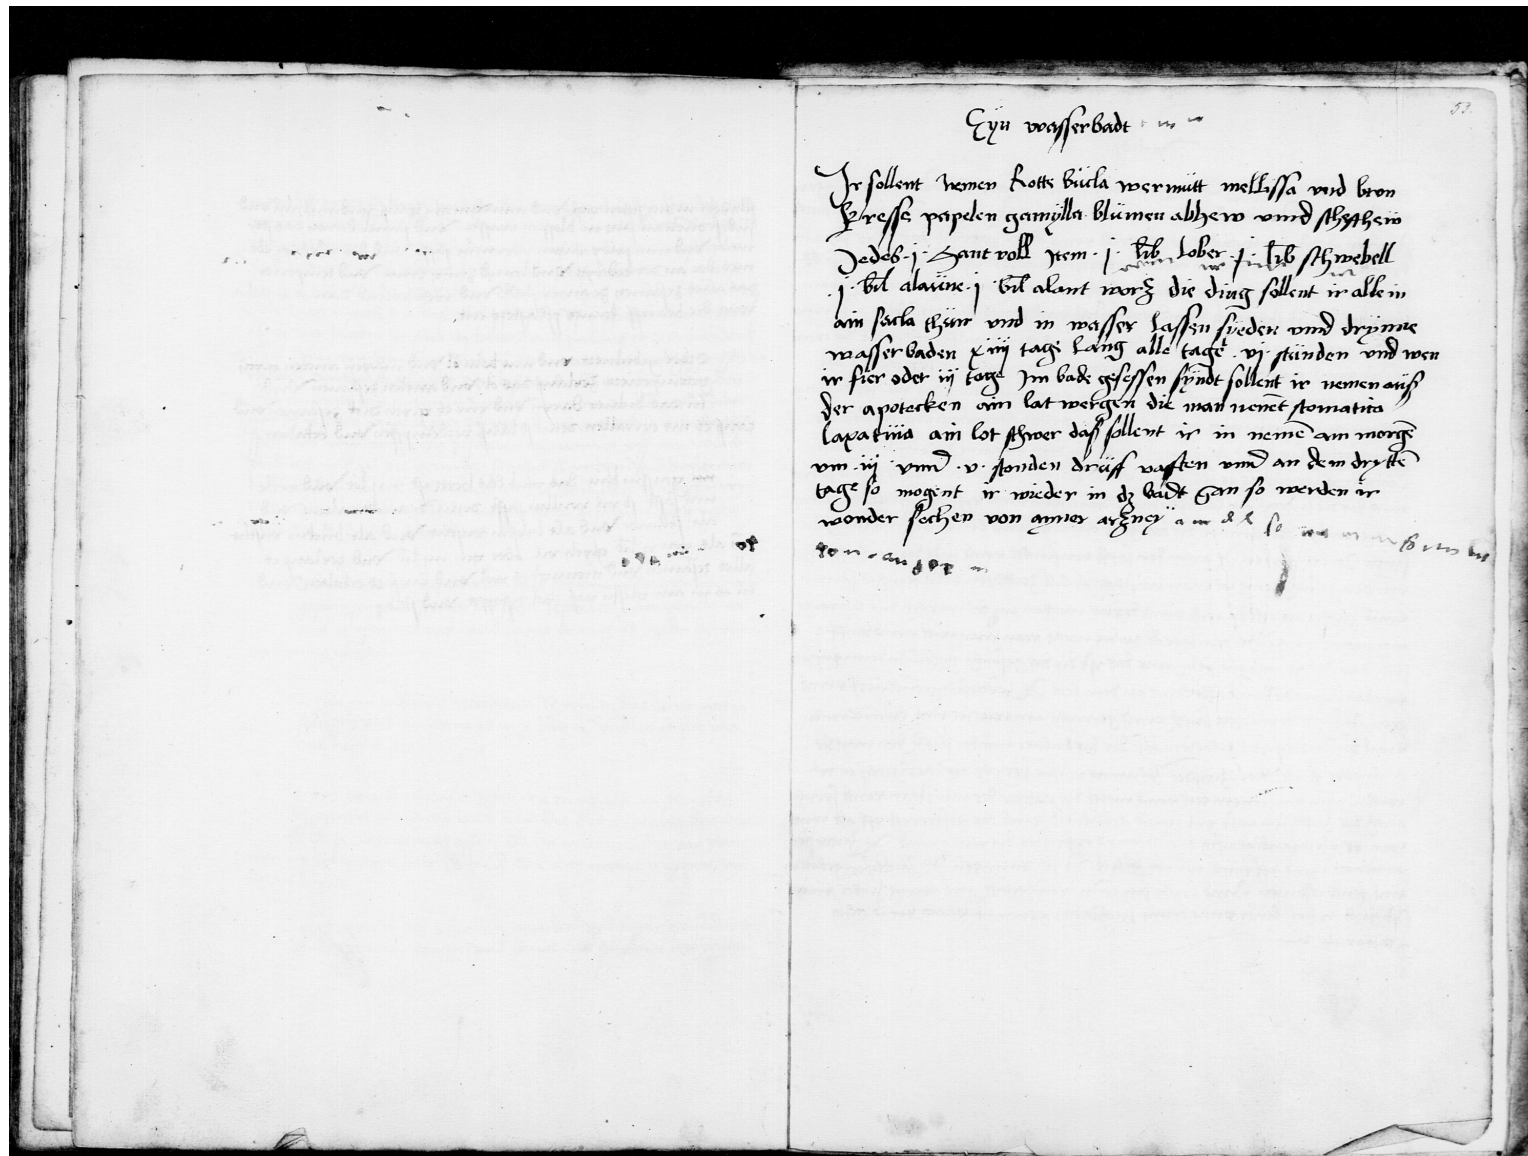 53.
Eyn wasserbadt
Ir sollent nemen Rotte bucla wermutt mellissa vnd bron
kresse papelen gamylla blümen abhew vnnd
Jedes · j · hant voll Item · j · lib lober · j · lib schwebell
· j · lib alaüne · j lib alant worz die ding sollent ir alle in
ain secla thun vnd in wasser lassen syeden vnnd drynne
wasser baden xiiij tage lang alle tage · vj · stünden vnd wen
ir fier oder iij tage Im bade gesessen syndt sollent ir nemen auß
der apotecken ain latwergen die man nenet stomatico
laxatiua ain lot schwer daß sollent ir in nemē am morgē
vm · iij · vnnd · v · stonden druff vasten vnnd an dem dryttē
tage so mogent ir wieder in dz badt gan so werden ir
wonder sechen von ayner arzney